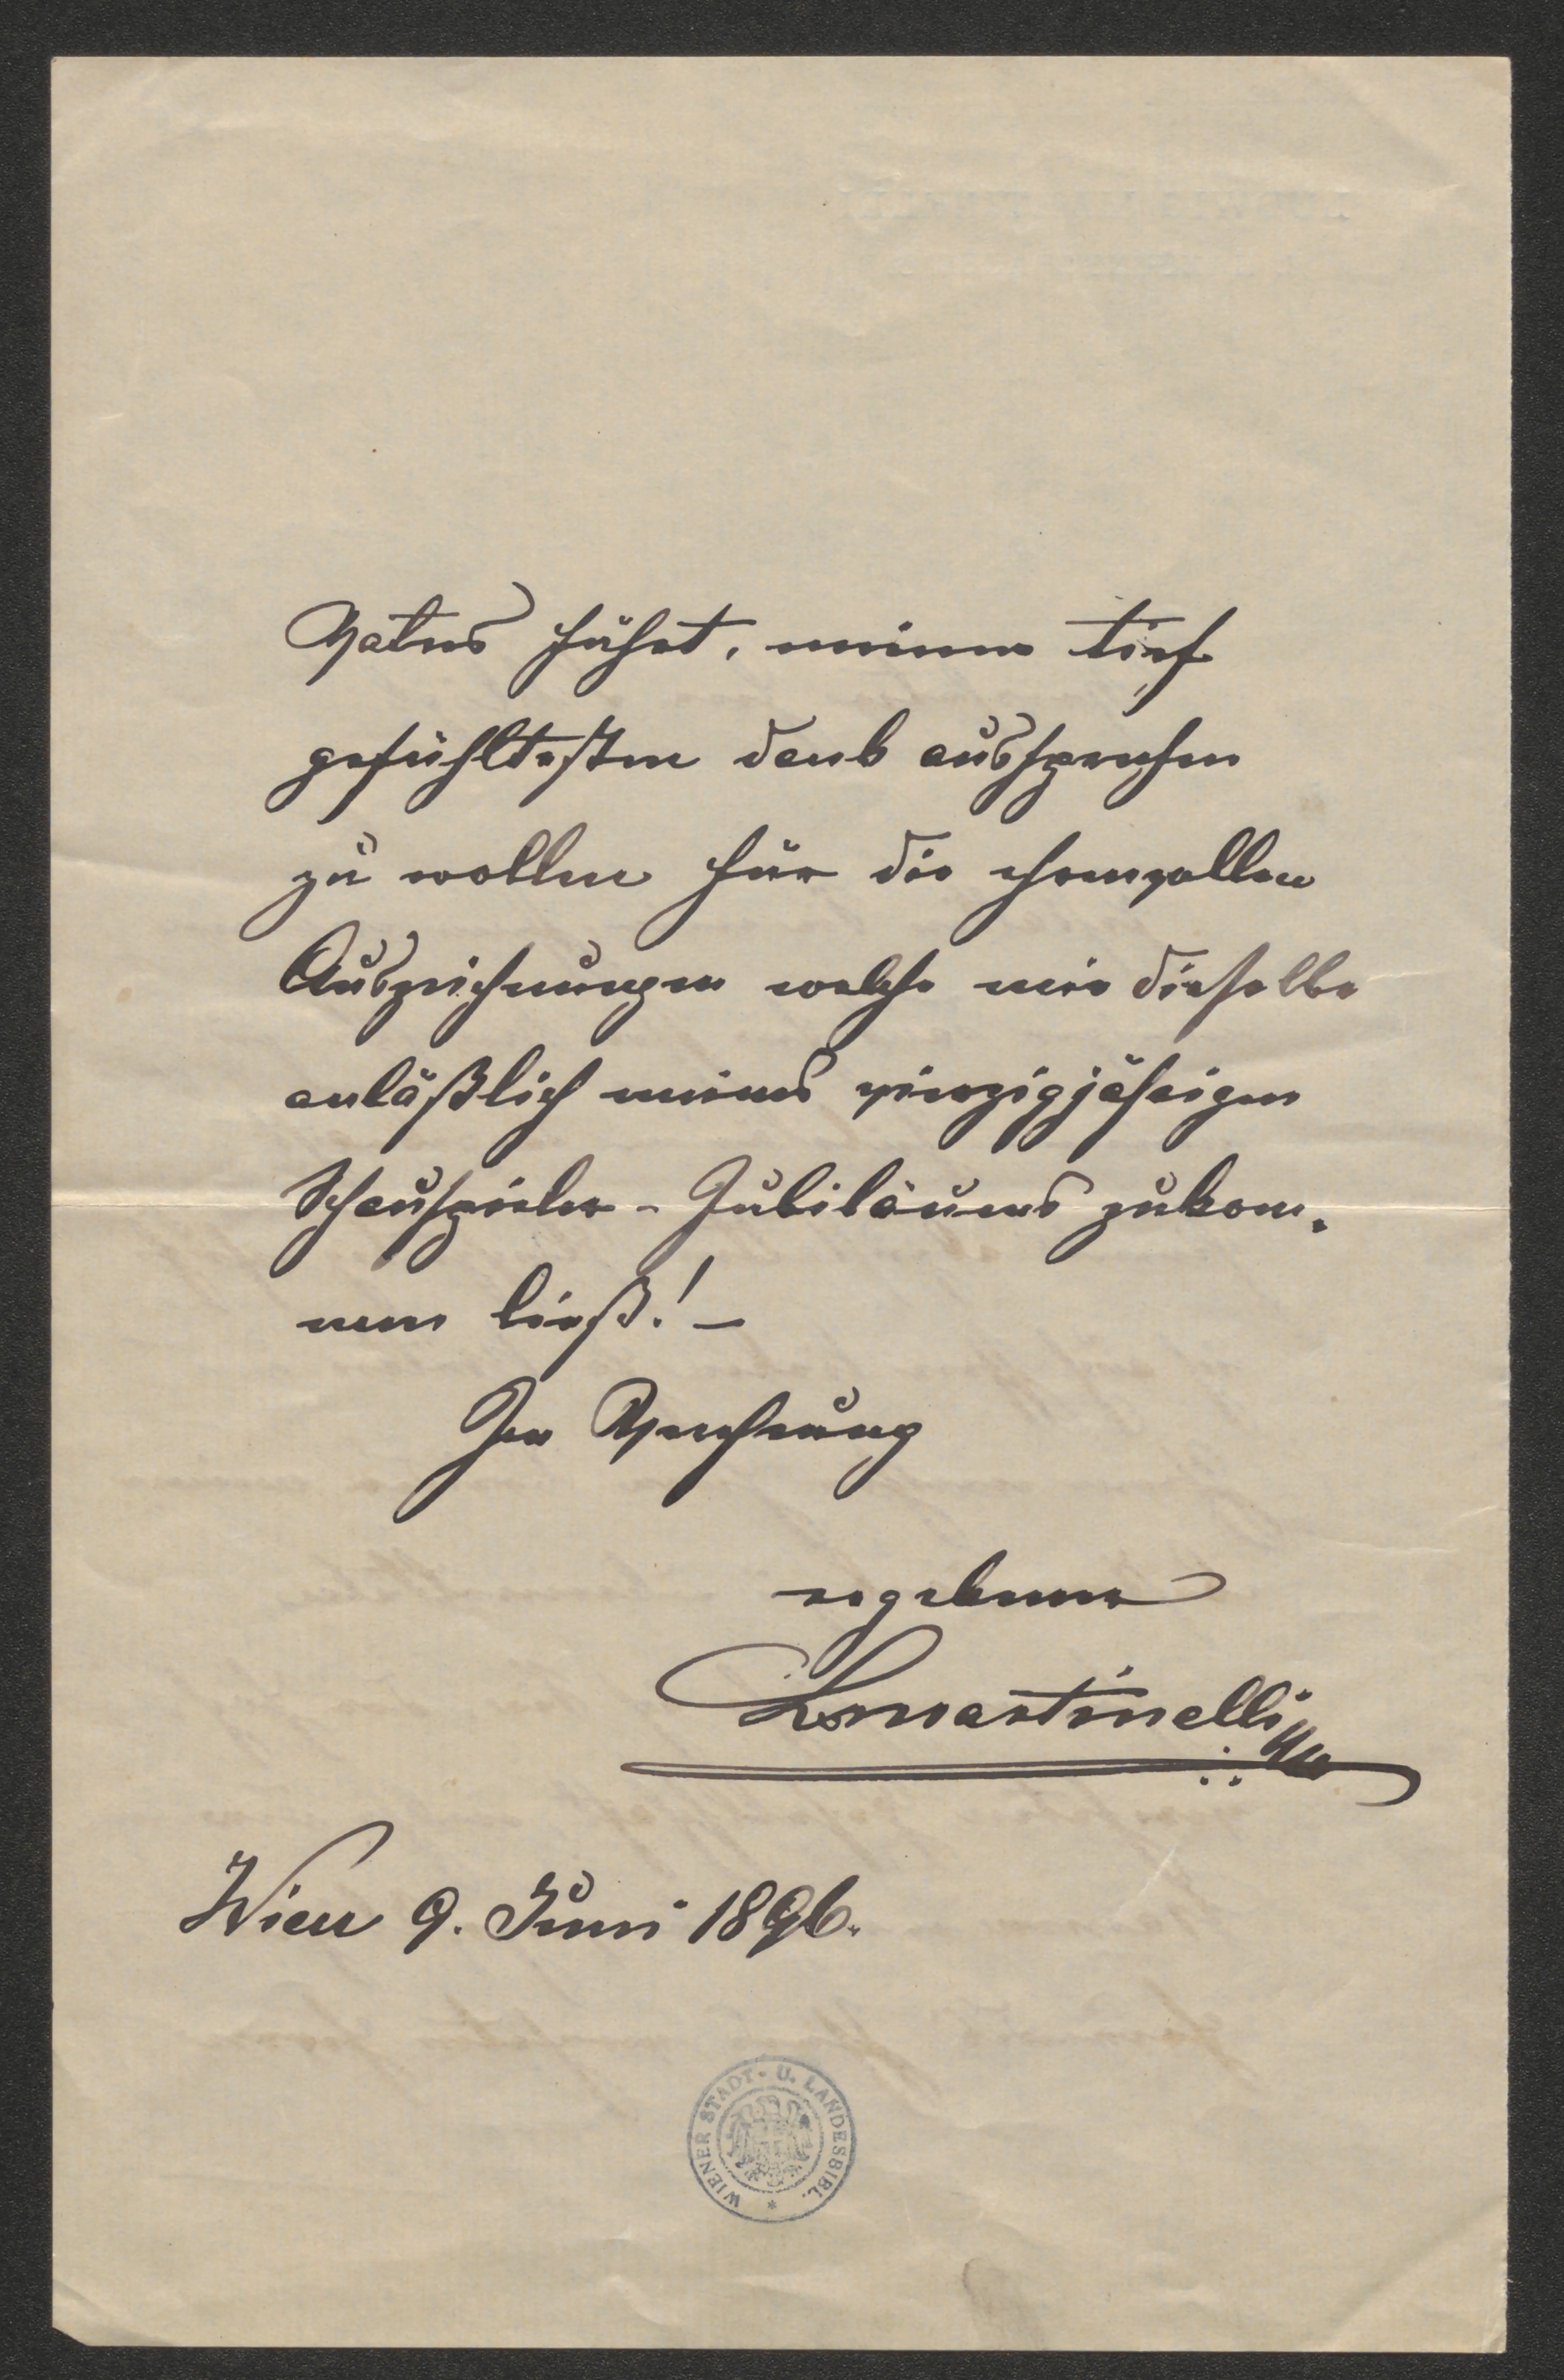 Vaters führt, meinen tief
gefühltesten Dank aussprechen
zu wollen für die ehrenvollen
Auszeichnungen welche mir dieselbe
anläßlich meines vierzigjährigen
Schauspieler-Jubiläums zukom-
men ließ! –
In Verehrung
ergebener
LMartinelli
Wien 9. Juni 1896.
WIENER STADT- U. LANDESBIBL.